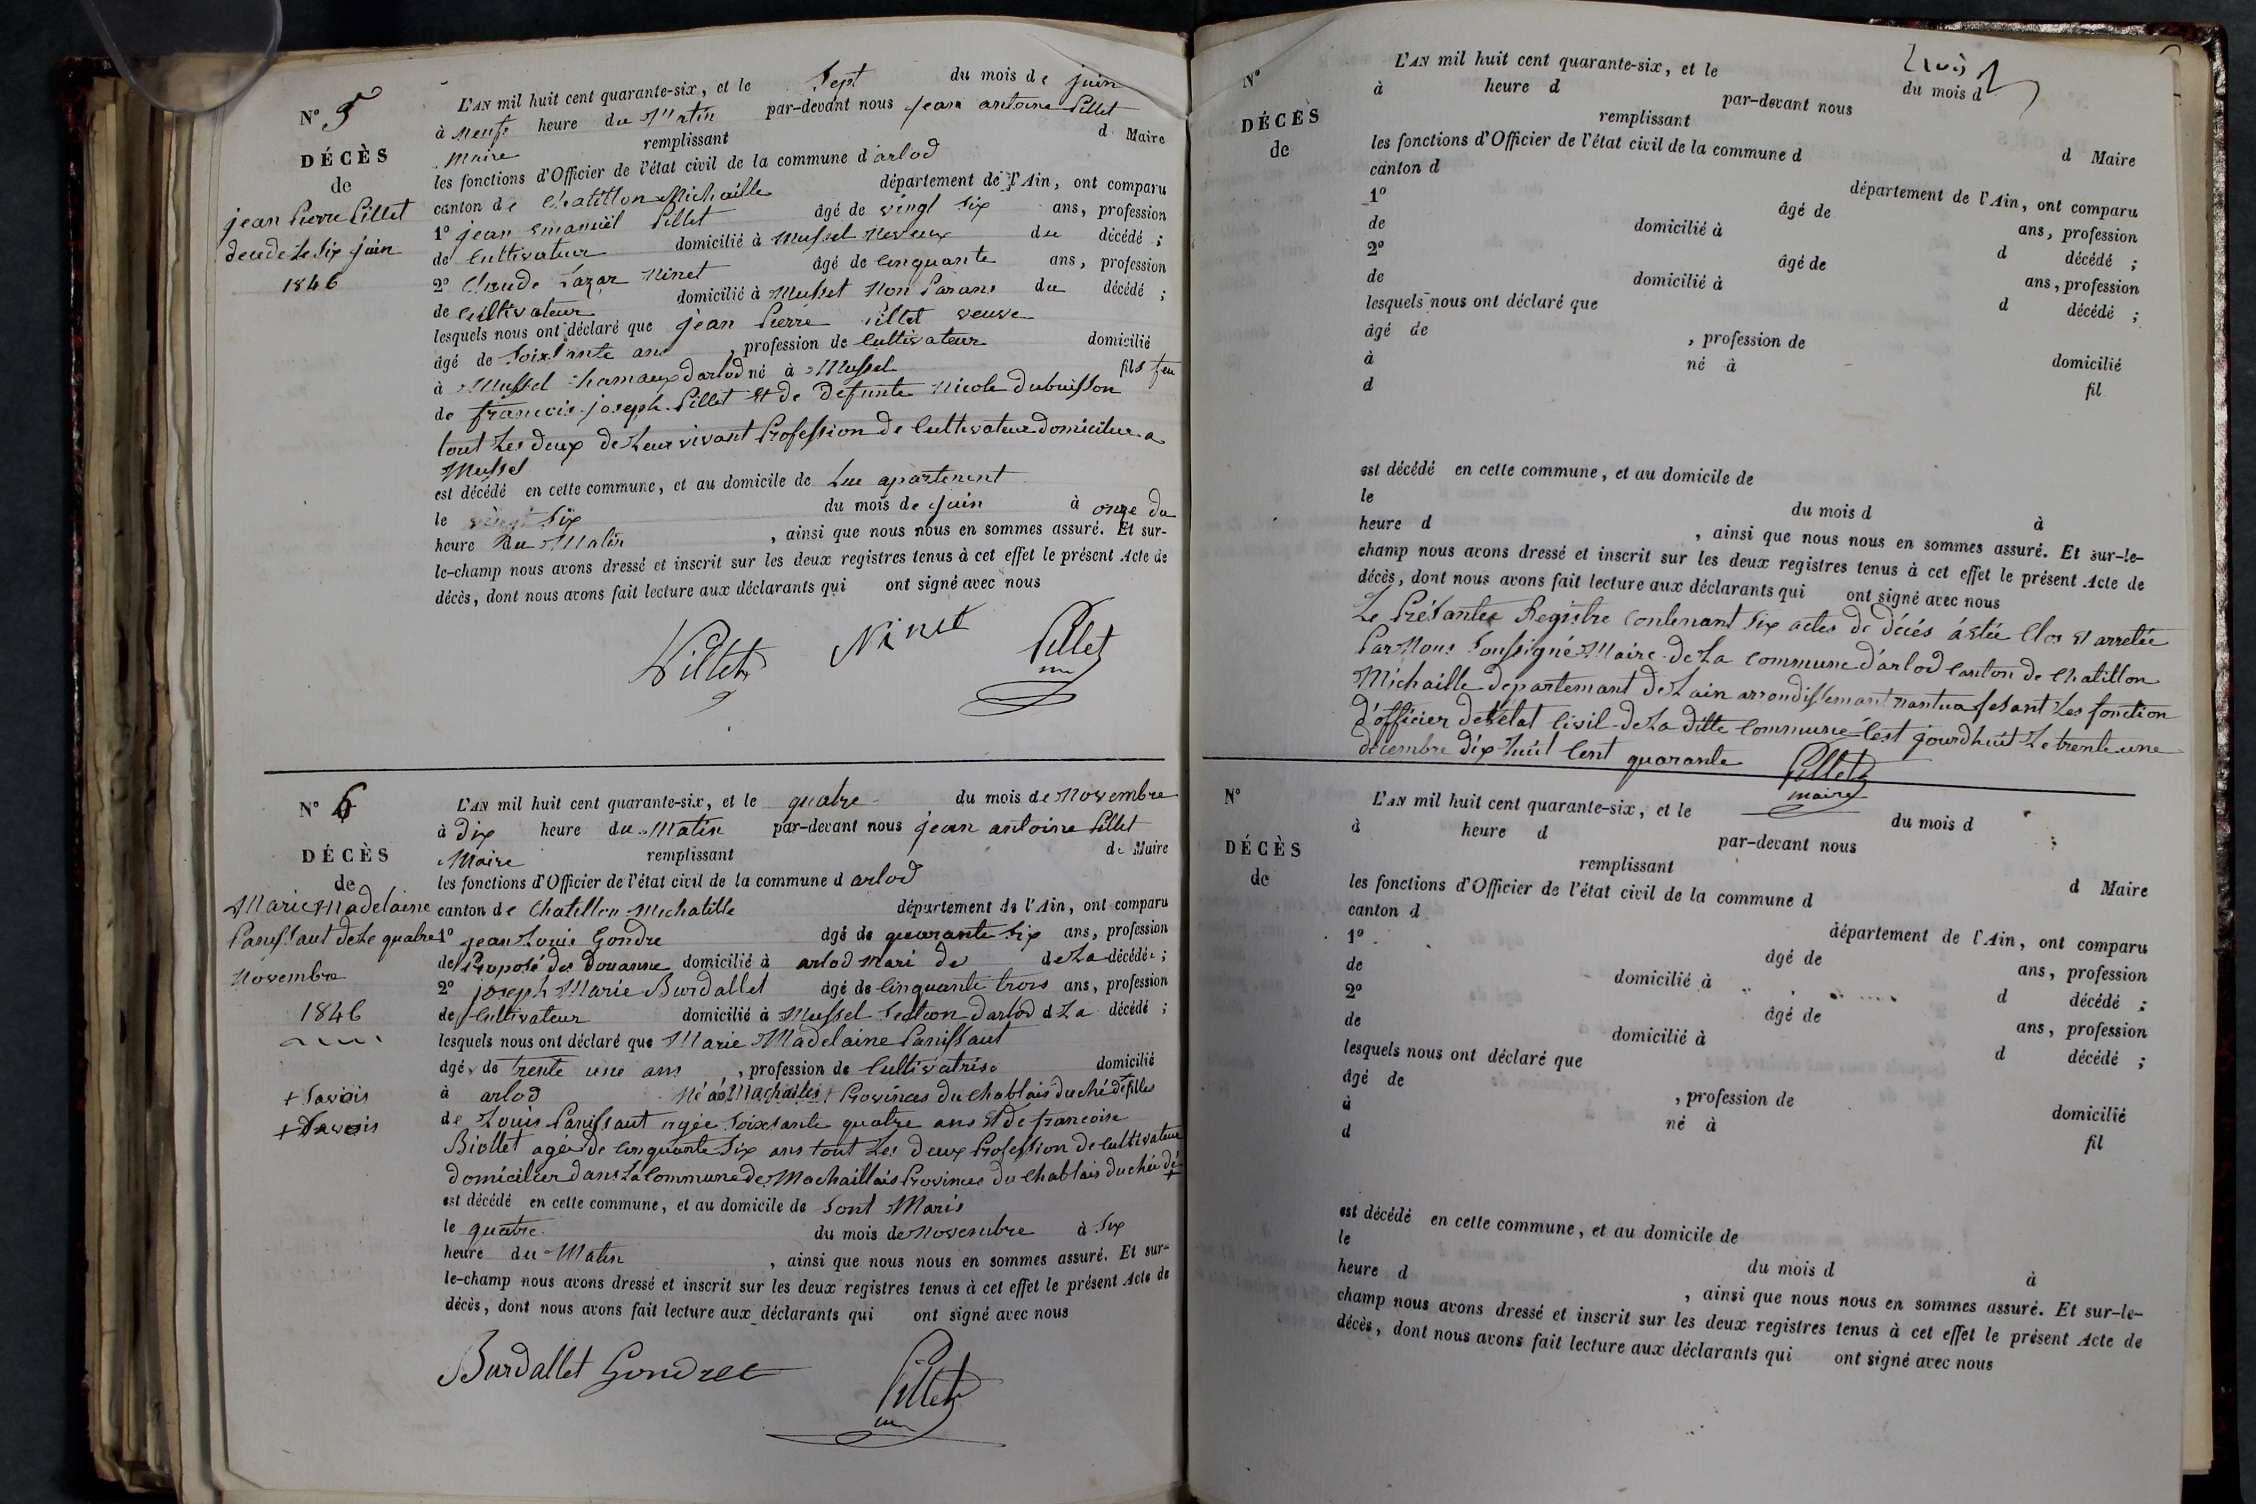 N° 5
DÉCÈS
de
jean Pierre Pillet
decede Le Six juin
1846
L'AN mil huit cent quarante-six, et le Sept du mois de juin
à neufs heure du Matin par-devant nous jean antoine Pillet
Maire remplissant d Maire
les fonctions d'Officier de l'état civil de la commune d'arlod
canton de Chatillon Michaille département de l'Ain, ont comparu
1° jean Emanuël Pillet âgé de vingt Six ans, profession
de Cultivateur domicilié à Mussel Neveux du décédé ;
2° Claude Lazar Ninet âgé de Cinquante ans, profession
de Cultivateur domicilié à Mussel Non Parans du décédé ;
lesquels nous ont déclaré que jean Pierre Pillet veuve
âgé de Soixante ans , profession de Cultivateur domicilié
à Mussel hamaux Darlod né à Mussel fils feu
de francois joseph Pillet Et de Defunte Nicole Dubuisson
tout Les deux de Leur vivant Profession de Cultivateur domicilier a
Mussel
est décédé en cette commune, et au domicile de Lui apartenent
le Six du mois de juin à onze du
heure du Matin , ainsi que nous nous en sommes assuré. Et sur-
le-champ nous avons dressé et inscrit sur les deux registres tenus à cet effet le présent Acte de
décès, dont nous avons fait lecture aux déclarants qui ont signé avec nous
Pillet Ninet Pillet
N° 6
DÉCÈS
de
Marie Madelaine
Panissaut de Le quatre
Novembre
1846
+ Savois
+ Savois
L'AN mil huit cent quarante-six, et le quatre du mois de Novembre
à dix heure du Matin par-devant nous jean antoine Pillet
Maire remplissant de Maire
les fonctions d'Officier de l'état civil de la commune d arlod
canton de Chatillon Michaille département de l'Ain, ont comparu
1° jean Louis Gondre âgé de quarante Six ans, profession
de Proposé des Douanne domicilié à arlod mari de de La décédée ;
2° joseph Marie Burdallet âgé de Cinquante trois ans, profession
de Cultivateur domicilié à Mussel Section Darlod d La décédé ;
lesquels nous ont déclaré que Marie Madelaine Panissaut
âgé de trente une ans , profession de Cultivatrise domicilié
à arlod Né à Machailles Provinces du Chablais duché de + filles
de Louis Panissaut agée Soixsante quatre ans Et De francoise
Biollet agée de Cinquante Six ans tout Les deux Profession de Cultivateur
domicilier dans La Commune de Machaillais Provinces du Chablais duchée dé +
est décédé en cette commune, et au domicile de Sont Maris
le quatre du mois de Novembre à Six
heure du Matin , ainsi que nous nous en sommes assuré. Et sur-
le-champ nous avons dressé et inscrit sur les deux registres tenus à cet effet le présent Acte de
décès, dont nous avons fait lecture aux déclarants qui ont signé avec nous
Burdallet Gondret Pillet
N°
DÉCÈS
de
L'AN mil huit cent quarante-six, et le du mois d
à heure d par-devant nous
remplissant d Maire
les fonctions d'Officier de l'état civil de la commune d
canton d département de l'Ain, ont comparu
1° âgé de ans, profession
de domicilié à d décédé ;
2° âgé de ans, profession
de domicilié à d décédé ;
lesquels nous ont déclaré que
âgé de , profession de domicilié
à né à fil
d
est décédé en cette commune, et au domicile de
le du mois d à
heure d , ainsi que nous nous en sommes assuré. Et sur-le-
champ nous avons dressé et inscrit sur les deux registres tenus à cet effet le présent Acte de
décès, dont nous avons fait lecture aux déclarants qui ont signé avec nous
Le Présantes Registre Contenant Six actes de décés à Etée Clos Et arretée
Par Nous Soussigné Maire de La Commune d'arlod Canton de Chatillon
Michaille departemant de Lain arrondissemant nantua fesant Les fonction
d'officier de l'Etat Civil de La Ditte Commune Cest jourdhuit Le trente une
décembre dix huit Cent quarante Pillet
maire
N°
DÉCÈS
de
L'AN mil huit cent quarante-six, et le du mois d
à heure d par-devant nous
remplissant d Maire
les fonctions d'Officier de l'état civil de la commune d
canton d département de l'Ain, ont comparu
1° âgé de ans, profession
de domicilié à d décédé ;
2° âgé de ans, profession
de domicilié à d décédé ;
lesquels nous ont déclaré que
âgé de , profession de domicilié
à né à fil
d
est décédé en cette commune, et au domicile de
le du mois d à
heure d , ainsi que nous nous en sommes assuré. Et sur-le-
champ nous avons dressé et inscrit sur les deux registres tenus à cet effet le présent Acte de
décès, dont nous avons fait lecture aux déclarants qui ont signé avec nous